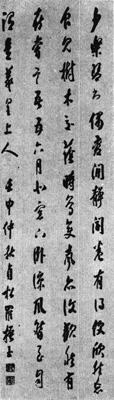 少學琴書偶愛閒靜開卷有得便欣然忘
食見樹木交蔭時鳥變聲亦復歡然有
喜嘗言五六月北窗下臥涼風暫至自
謂是羲皇上人 壬申仲秋貞松羅振玉